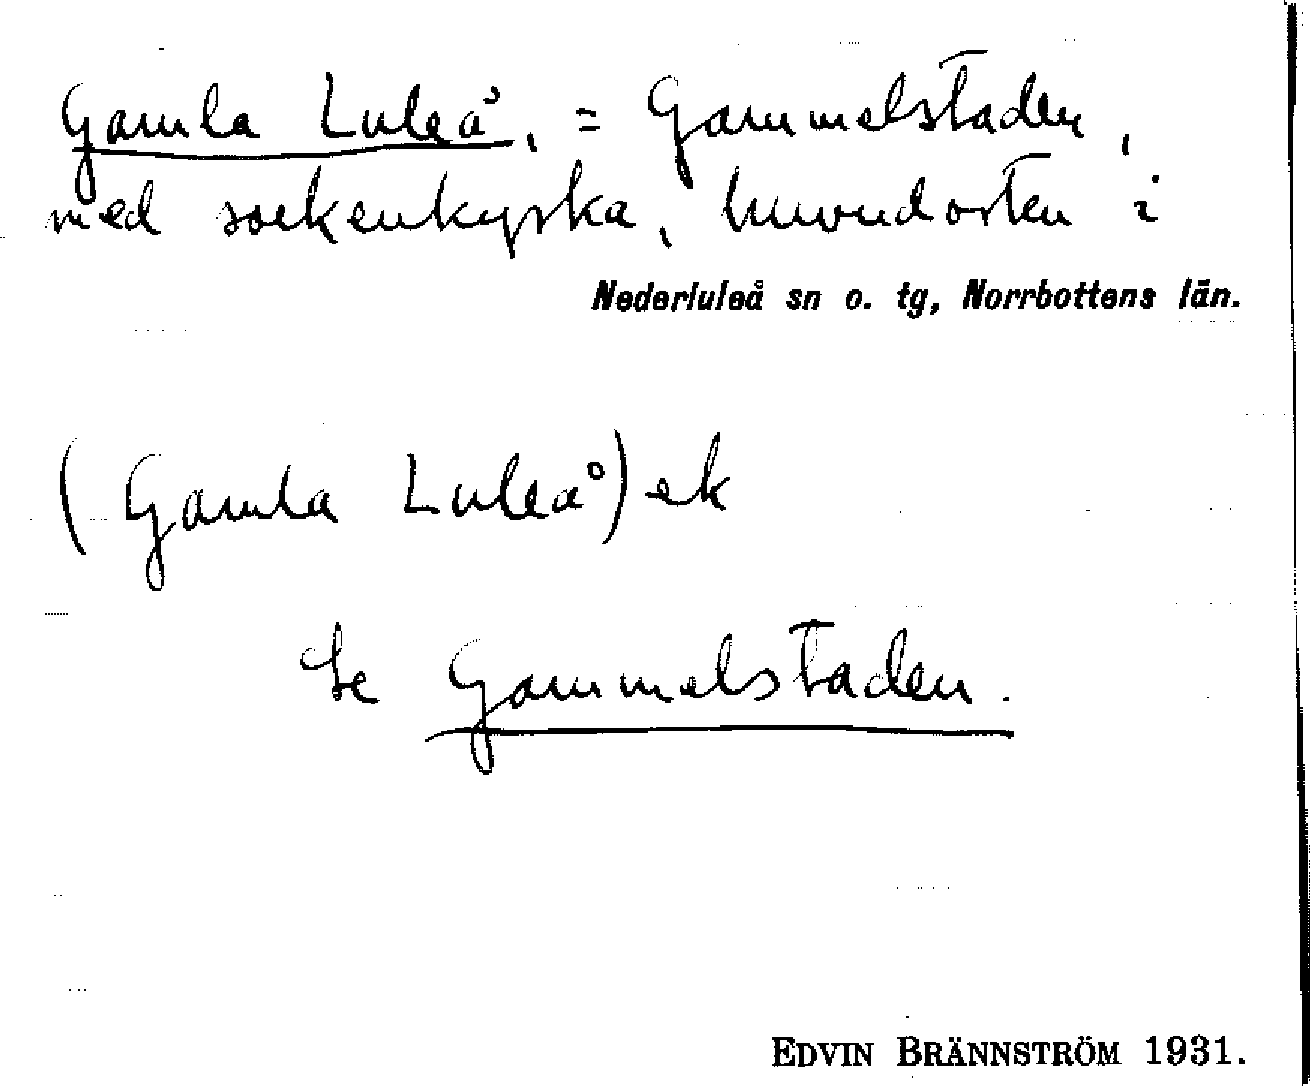 Gamla Luleå, = Gammelstaden,
med sockenkyrka, huvudorten i
Nederluleå sn o. tg, Norrbottens län.
(Gamla Luleå) ek
Se Gammelstaden.
EDVIN BRÄNNSTRÖM 1931.